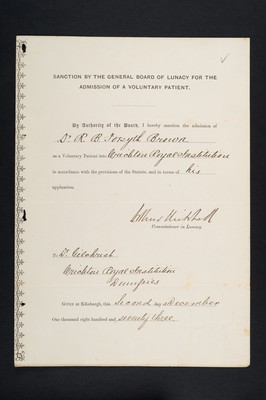 SANCTION BY THE GENERAL BOARD OF LUNACY FOR THE
ADMISSION OF A VOLUNTARY PATIENT.
By Authority of the Board, I hereby sanction the admission of
Dr R. B. Forsyth Brown
as a Voluntary Patient into Crichton Royal Institution
in accordance with the provisions of the Statute, and in terms of his
application.
Arthur Mitchell
Commissioner in Lunacy.
To Dr Gilchrist
Crichton Royal Institution
Dumfries
Given at Edinburgh, this Second day December
One thousand eight hundred and seventy three